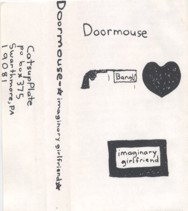 Doormouse
Bang!
imaginary
girlfriend
Doormouse-★imaginary girlfriend★
CatsupPlate
po box 375
Swarthmore, PA
19081